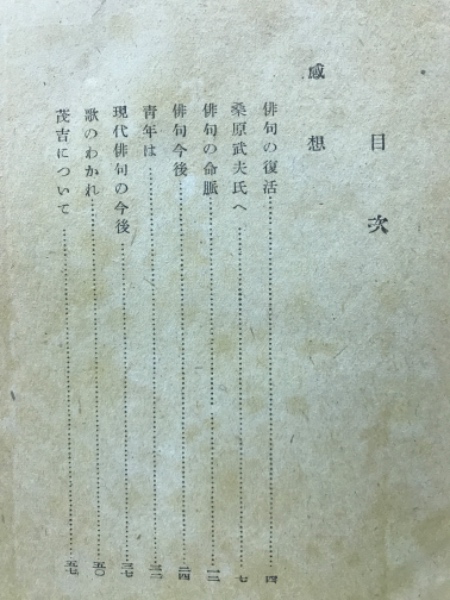 目次
感想
俳句の復活……四
桑原武夫氏へ……七
俳句の命脈……一二
俳句今後……二四
青年は……三二
現代俳句の今後……三七
歌のわかれ……五〇
茂吉について……五七